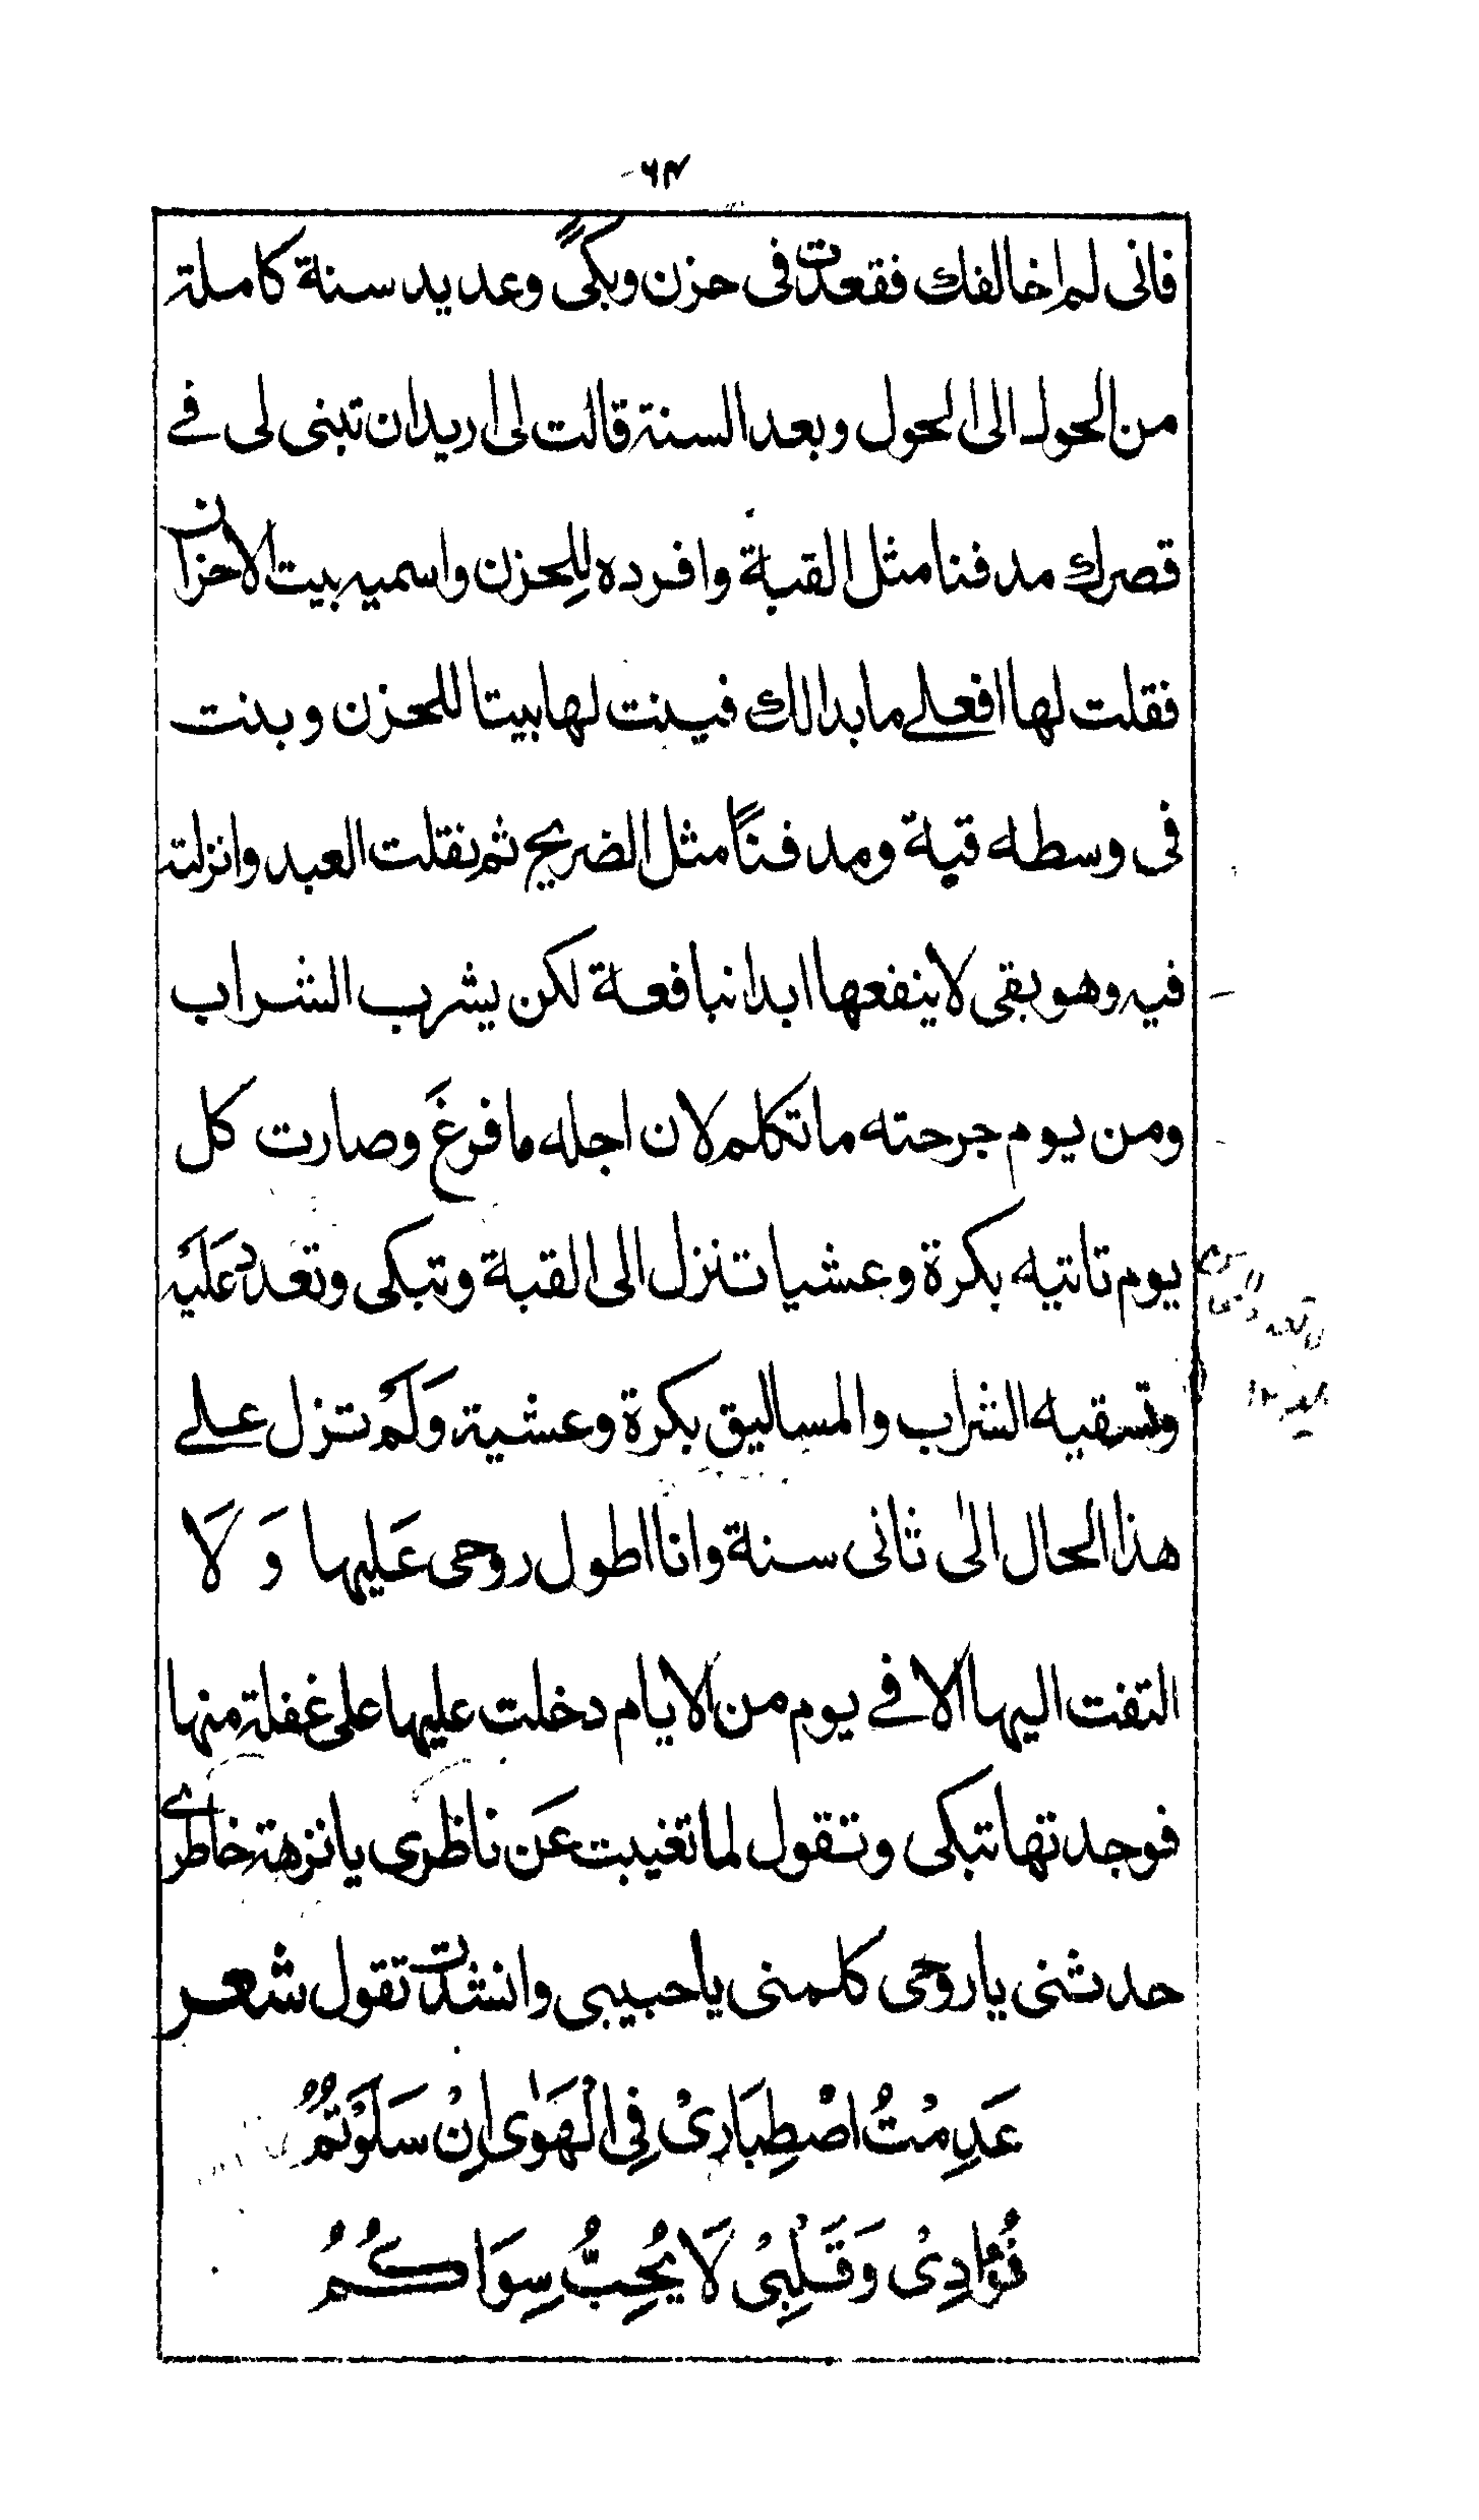 ٦٣
فانى لم اخالفك فقعدت فى حزن وبكًى وعديد سنة كاملة
من الحول الى الحول وبعد السنة قالت لى اريد ان تبنى لى فے
قصرك مدفنا مثل القبة وافرده لِلحزن واسميه بيت الاحزان
فقلت لها افعلے ما بدا لك فبنت لها بيتا للحزن وبنت
فى وسطه قبة ومدفناً مثل الضريح ثم نقلت العبد وانزلته
فيه وهو بقى لا ينفعها ابدا نبافعة لكن يشرب الشراب
ومن يوم جرحته ما تكلم لان اجله ما فرغَ وصارت كل
يوم تاتيه بكرة وعشيا تنزل الى القبة وتبكى وتعدّد عَلَيه
وتسقيه الشراب والمساليق بكرة وعشية وَلَم تزل علے
هذا الحال الىٰ ثانى سنة وانا اطول روحى عَليها وَ لَا
التفت اليها الا فے يوم من الايام دخلت عليها على غفلة منها
فوجدتها تبكى وتقول لما تغيبت عَن ناظرى يا نزهة خاطرے
حدثنى يا روحى كلمنى يا حبيبى وانشدت تقول شعر
عَدِمْتُ اصْطِبَارِىْ فِى الْهَوٰى اِنْ سَلَوْتُمُ
فُؤَادِىْ وَقَلْبِىْ لَا يُحِبُّ سِوَاكُمُ